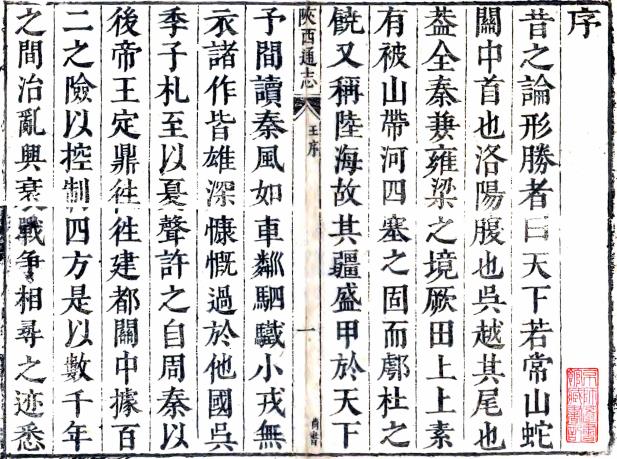 序
昔之論形勝者曰天下若常山蛇
關中首也洛陽腹也吳越其尾也
葢全秦兼雍梁之境厥田上上素
有被山帶河四塞之固而鄠杜之
饒又稱陸海故其疆盛甲於天下
陝西通志
王序
一
予間讀秦風如車鄰駟驖小戎無
衣諸作皆雄深慷慨過於他國吳
季子札至以夏聲許之自周秦以
後帝王定鼎往往建都關中據百
二之險以控制四方是以數千年
之間治亂興衰戰爭相尋之迹悉